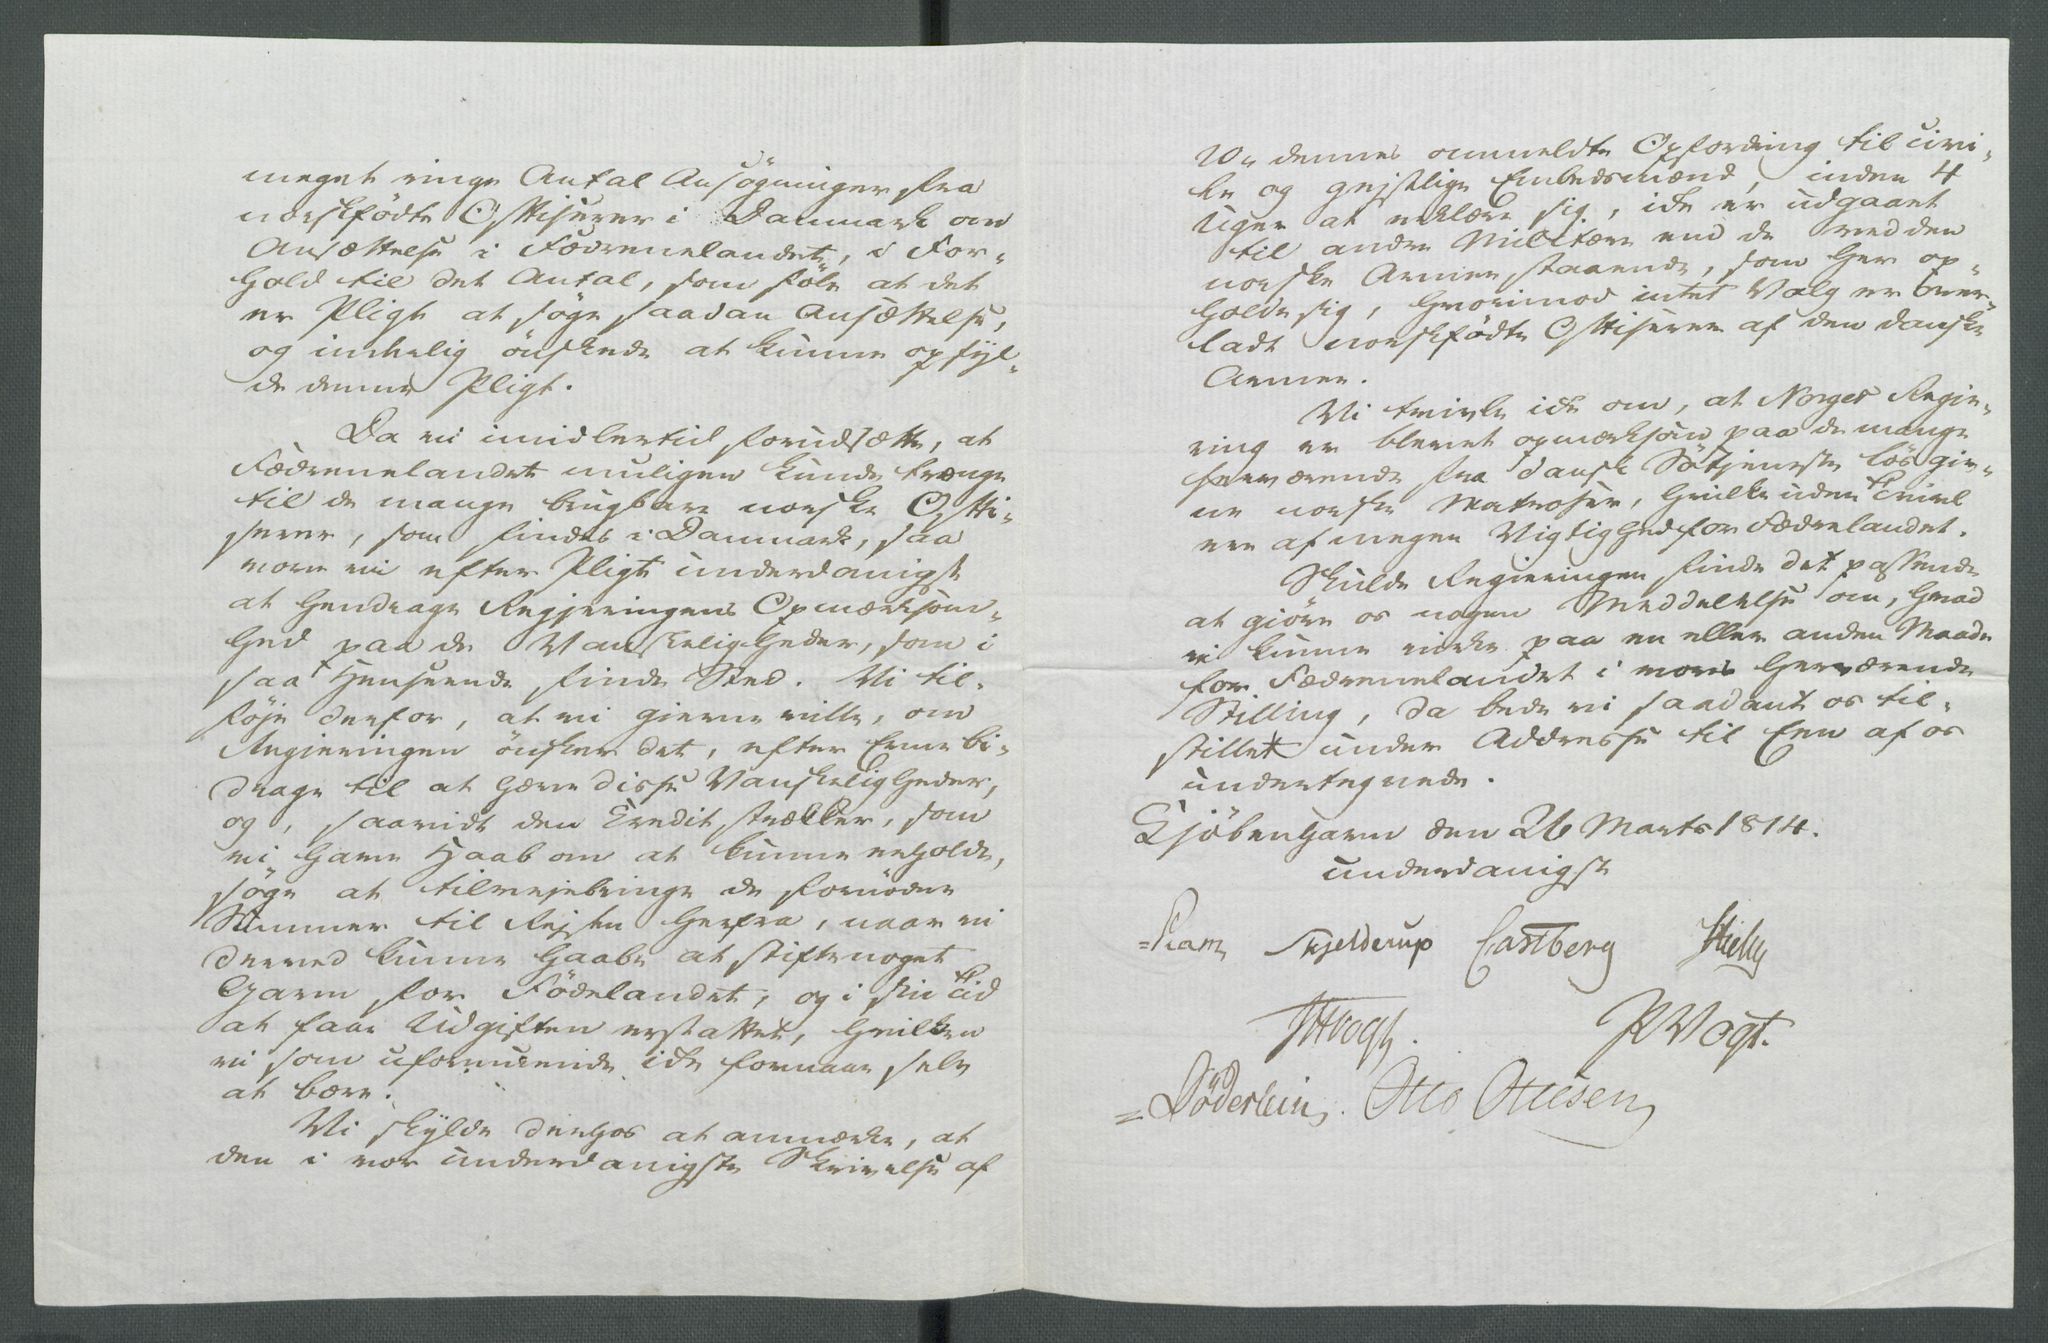 meget ringe Antal Ansögninger fra
norskfödte Officerer i Danmark om
Ansættelse i Fædrenelandet, i For-
hold til det Antal, som föle at det
er Pligt at söge saadan Ansættelse,
og inderlig önskede at kunne opfyl-
de denne Pligt.
Da vi imidlertid forudsætte, at
Fædrenelandet muligen kunde trænge
til de mange brugbare norske Offi-
serer, som findes i Danmark, saa
vove vi efter Pligt underdanigst
at hendrage Regjeringens Opmærksom-
hed paa de Vanskeligheder, som i
saa Henseende finde Sted. Vi til-
föje derfor, at vi gierne ville, om
Regieringen önsker det, efter Evne bi-
drage til at hæve disse Vanskeligheder,
og, saavidt den Credit strækker, som
vi have Haab om at kunne erholde,
söge at tilvejebringe de fornödne
Summer til Rejsen herfra, naar vi
derved kunne haabe at stifte noget
Gavn for Födelandet, og i sin Tid
at faae Udgiften erstattet, hvilken
vi som uformuende ikke formaae selv
at bære.
Vi skylde derhos at anmærke, at
den i vor underdanigste Skrivelse af
20de dennes anmeldte Opfordring til civi-
le og gejstlige Embedsmænd, inden 4
Uger at erklære sig, ikke er udgaaet
til andre Militære end de ved den
norske Armee staaende, som her op-
holde sig, hvorimod intet Valg er over-
ladt norskfödte Officerer af den danske
Armee.
Vi tvivle ikke om, at Norges Regie-
ring er blevet opmærksom paa de mange
herværende fra dansk Söetjeneste lösgiv-
ne norske Matroser, hvilke uden Tvivl
ere af megen Vigtighed for Fædrelandet.
Skulde Regieringen finde det passende
at giöre os nogen Meddelelse om, hvad
vi kunne virke paa en eller anden Maade
for Fædrenelandet i vores herværende
Stilling, da bede vi saadant os til-
stillet under Addresse til Een af os
undertegnede.
Kjöbenhavn den 26 Marts 1814.
underdanigst
Pram Skjelderup Castberg
JHVogt. R Vogt.
Döderlein. Otto Ottesen